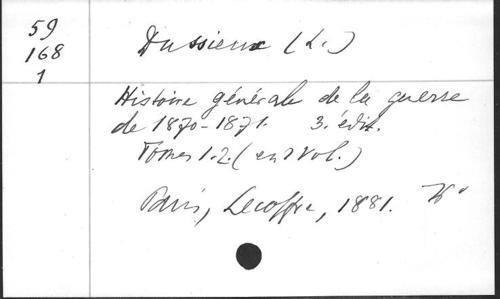 59
168
1
Dussieux (L.)
Histoire générale de la guerre
de 1870-1871. 3. édit.
Tomes 1.2. (en 2 vol.)
Paris, Lecoffre, 1881.